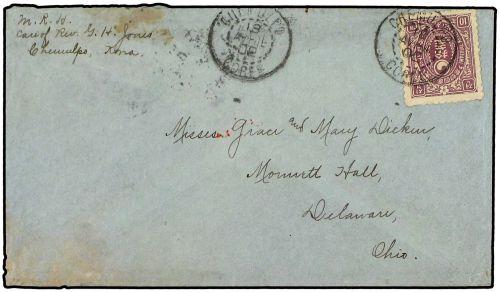 M. R. H.
Care of Rev. G. H. Jones
Chemulpo, Korea
CHEMULPO
COREE
10
Misses Grace and Mary Dicken,
Monnett Hall,
Delaware,
Ohio.